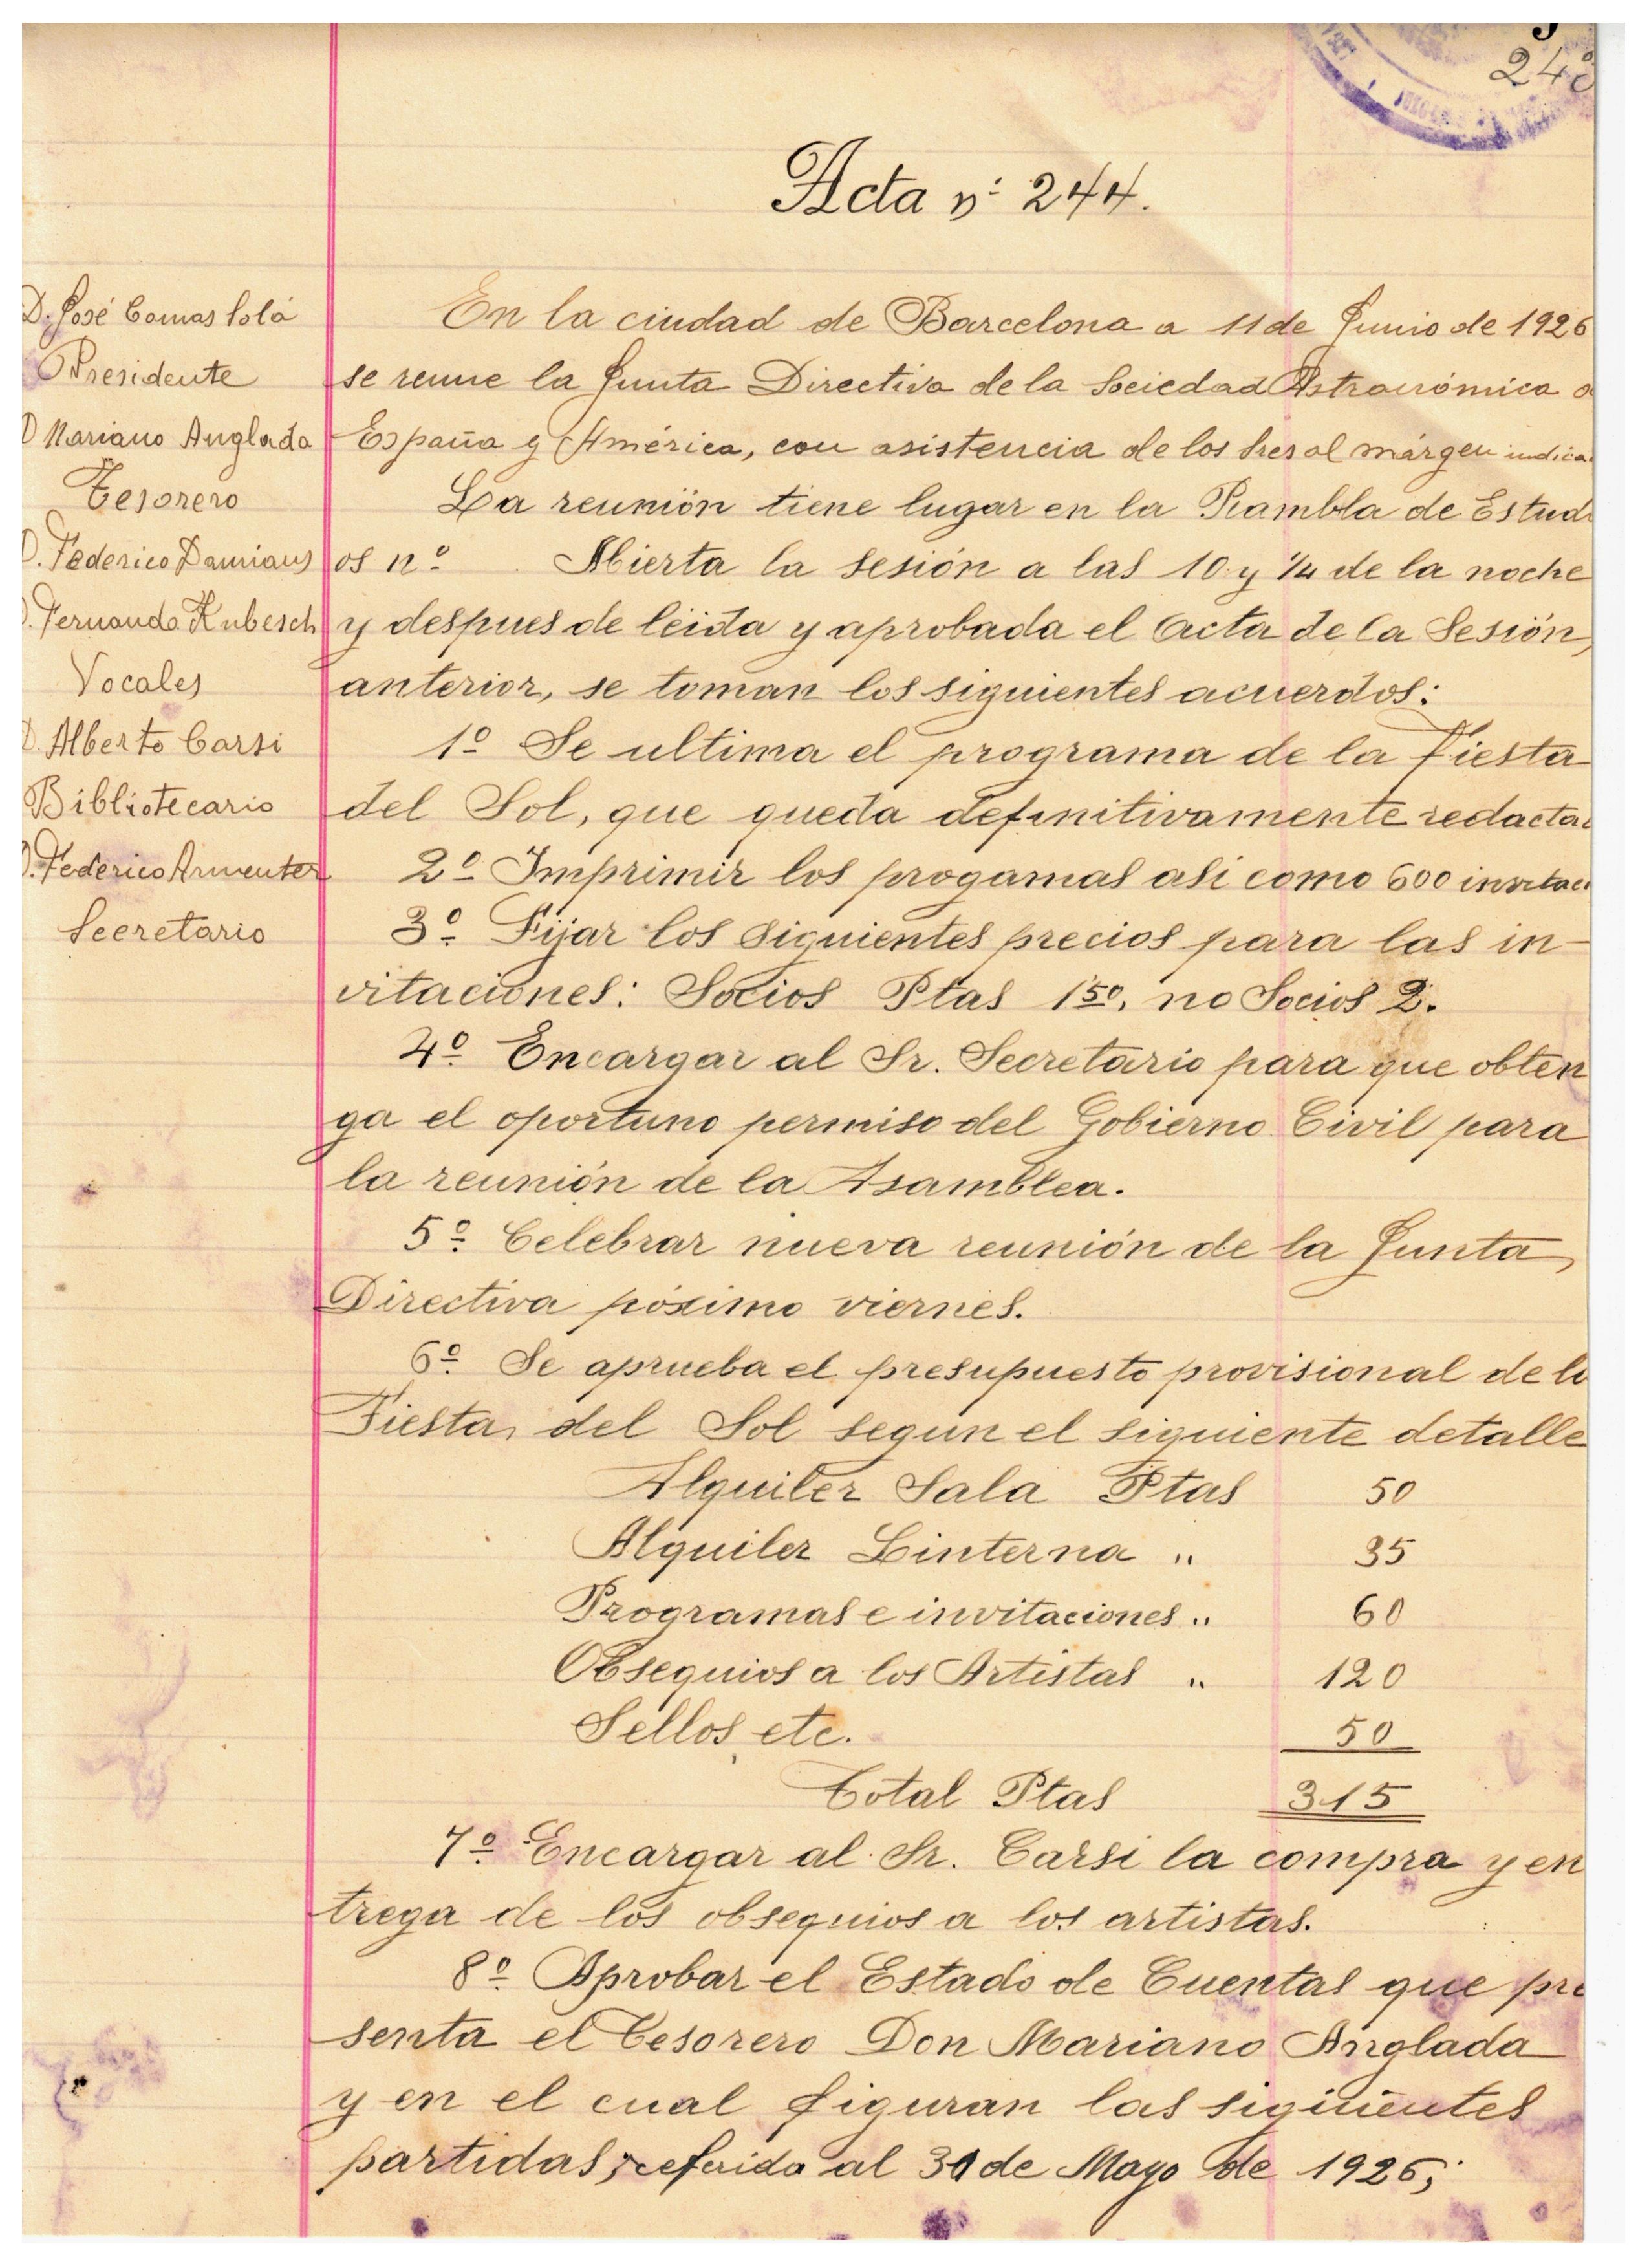 Acta nº 244.
D. José Comas Solá
Presidente
D Mariano Anglada
Tesorero
D. Federico Damians
D. Fernando Kubesch
Vocales
D. Alberto Carsi
Bibliotecario
D. Federico Armenter
Secretario
En la ciudad de Barcelona a 11 de Junio de 1926
se reune la Junta Directiva de la Sociedad Astronómica
España y América, con asistencia de los Sres al márgen indica
La reunión tiene lugar en la Rambla de Estudi
os nº . Abierta la sesión a las 10 y 1/4 de la noche
y despues de leida y aprobada el acta de la Sesión,
anterior, se toman los siguientes acuerdos:
1º Se ultima el programa de la Fiesta
del Sol, que queda definitivamente redacta
2º Imprimir los progamas asi como 600 invitaci
3º Fijar los siguientes precios para las in-
vitaciones: Socios Ptas 1 50, no Socios 2.
4º Encargar al Sr. Secretario para que obten
ga el oportuno permiso del Gobierno Civil para
la reunión de la Asamblea.
5º Celebrar nueva reunión de la Junta,
Directiva póximo viernes.
6º Se aprueba el presupuesto provisional de la
Fiesta, del Sol segun el siguiente detalle
Alquiler Sala Ptas 50
Alquiler Linterna " 35
Programas e invitaciones " 60
Obsequios a los Artistas " 120
Sellos, etc. 50
Total Ptas 315
7º Encargar al Sr. Carsi la compra y en
trega de los obsequios a los artistas.
8º Aprobar el Estado de Cuentas que pre
senta el Tesorero Don Mariano Anglada
y en el cual figuran las siguientes
partidas, referida al 30 de Mayo de 1926;